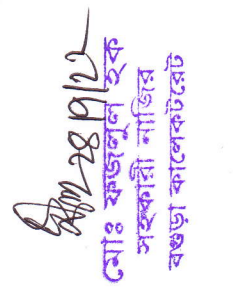 ২৪/৭/২২
মোঃ ফজলুল হক
সহকারী নাজির
বগুড়া কালেকটরেট